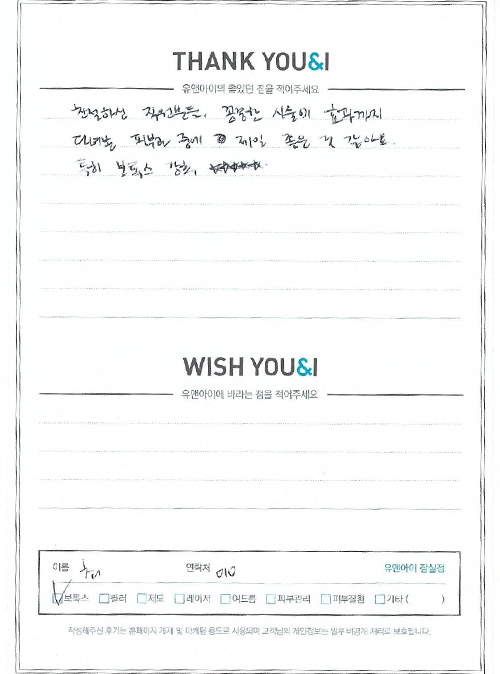 THANK YOU&I
유앤아이의 좋았던 점을 적어주세요
친절하신 직원분들, 꼼꼼한 시술에 효과까지
다녀본 피부과 중에 제일 좋은 것 같아요.
특히 보톡스 강추,
WISH YOU&I
유앤아이에 바라는 점을 적어주세요
이름 연락처 010 유앤아이 잠실점
보톡스 필러 제모 레이저 여드름 피부관리 피부질환 기타 ( )
작성해주신 후기는 홈페이지 게재 및 마케팅 용도로 사용되며 고객님의 개인정보는 일부 비공개 처리로 보호됩니다.